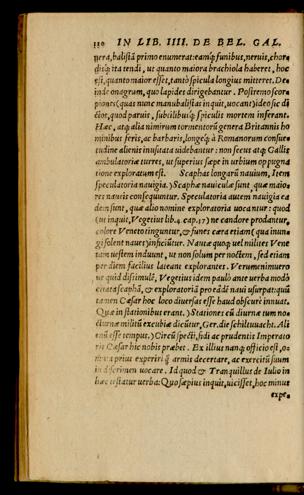 110 IN LIB. IIII. DE BEL. GAL.
nera, balistā primo enumerat: eamq́; funibus, neruis, chor-
disq́; ita tendi, ut quanto maiora brachiola haberet, hoc
est, quanto maior esset, tantò spicula longius mitteret. De
inde onagrum, quo lapides dirigebantur. Postremo scor-
piones (quas nunc manubalistas inquit, uocant) ideo sic di
ctos, quod paruis, subtilibusq́; spiculis mortem inferant.
Hæc, atq́; alia nimirum tormentorū genera Britannis ho
minibus feris, ac barbaris, longeq́; à Romanorum consue-
tudine alienis inusitata uidebantur: non secus atq; Gallis
ambulatoriæ turres, ut superius sæpe in urbium oppugna
tione exploratum est. Scaphas longarū nauium, Item
speculatoria nauigia.) Scaphæ nauiculæ sunt, quæ maio-
res naueis consequuntur. Speculatoria autem nauigia ea
dem sunt, quæ alio nomine exploratoria uocantur: quod
(ut inquit, Vegetius lib. 4. cap. 37) ne candore prodantur,
colore Veneto tinguntur, & funes cæra etiam (qua inun-
gi solent naues) inficiūtur. Nautæ quoq; uel milites Vene
tam uestem induunt, ut non solum per noctem, sed etiam
per diem facilius lateant explorantes. Verumenimuero
ne quid dißimulē, Vegetius idem paulo ante uerba modò
citata scaphā, & exploratoriā pro eādē naui usurpat: quū
tamen Cæsar hoc loco diuersas esse haud obscurè innuat.
Quæ in stationibus erant.) Stationes cū diurnæ tum no-
cturnæ militū excubiæ dicūtur, Ger. die schiltuuacht. Ali
enū esse tempus.) Circūspecti, fidi ac prudentis Imperato
ris Cæsar hic nobis præbet. Ex illius nanq; officio est, o-
mnia prius experiri q̄ armis decertare, ac exercitū suum
in discrimen uocare. Id quod & Tranquillus de Iulio in
hæc testatur uerba: Quo sæpius inquit, uicisset, hoc minus
expe-